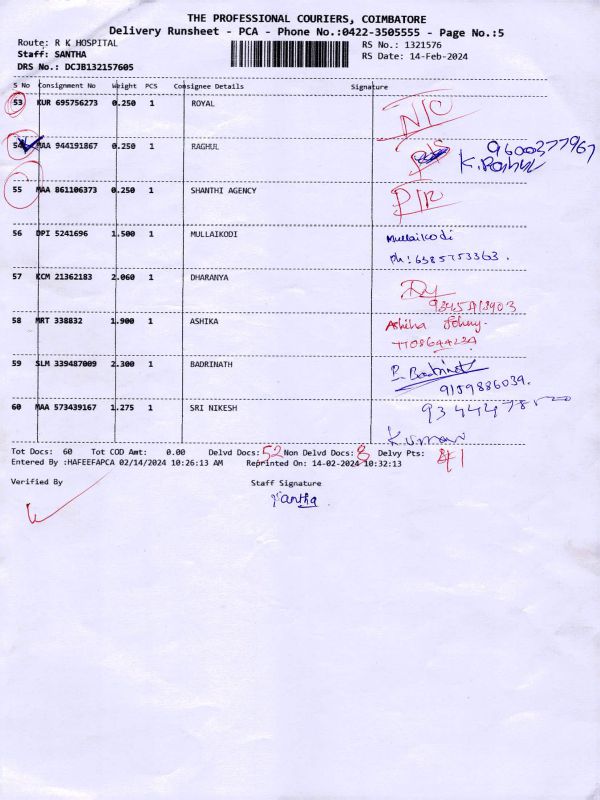 THE PROFESSIONAL COURIERS, COIMBATORE
Delivery Runsheet - PCA - Phone No.:0422-3505555 - Page No.:5
Route: R K HOSPITAL
RS No.: 1321576
Staff: SANTHA
RS Date: 14-Feb-2024
DRS No.: DCJB132157605
S No Consignment No Weight PCS Consignee Details Signature
53 KUR 695756273 0.250 1 ROYAL N/C
54 MAA 944191867 0.250 1 RAGHUL 9600377967
K. Raghul
55 MAA 861106373 0.250 1 SHANTHI AGENCY
56 DPI 5241696 1.500 1 MULLAIKODI Mullaikodi
Ph: 6385753363.
57 KCM 21362183 2.060 1 DHARANYA
58 MRT 338832 1.900 1 ASHIKA Ashika
59 SLM 339487009 2.300 1 BADRINATH P. Badrinath
9159886039.
60 MAA 573439167 1.275 1 SRI NIKESH
Kumari
Tot Docs: 60 Tot COD Amt: 0.00 Delvd Docs: 52 Non Delvd Docs: 8 Delvy Pts: 41
Entered By :HAFEEFAPCA 02/14/2024 10:26:13 AM Reprinted On: 14-02-2024 10:32:13
Verified By Staff Signature
Santha